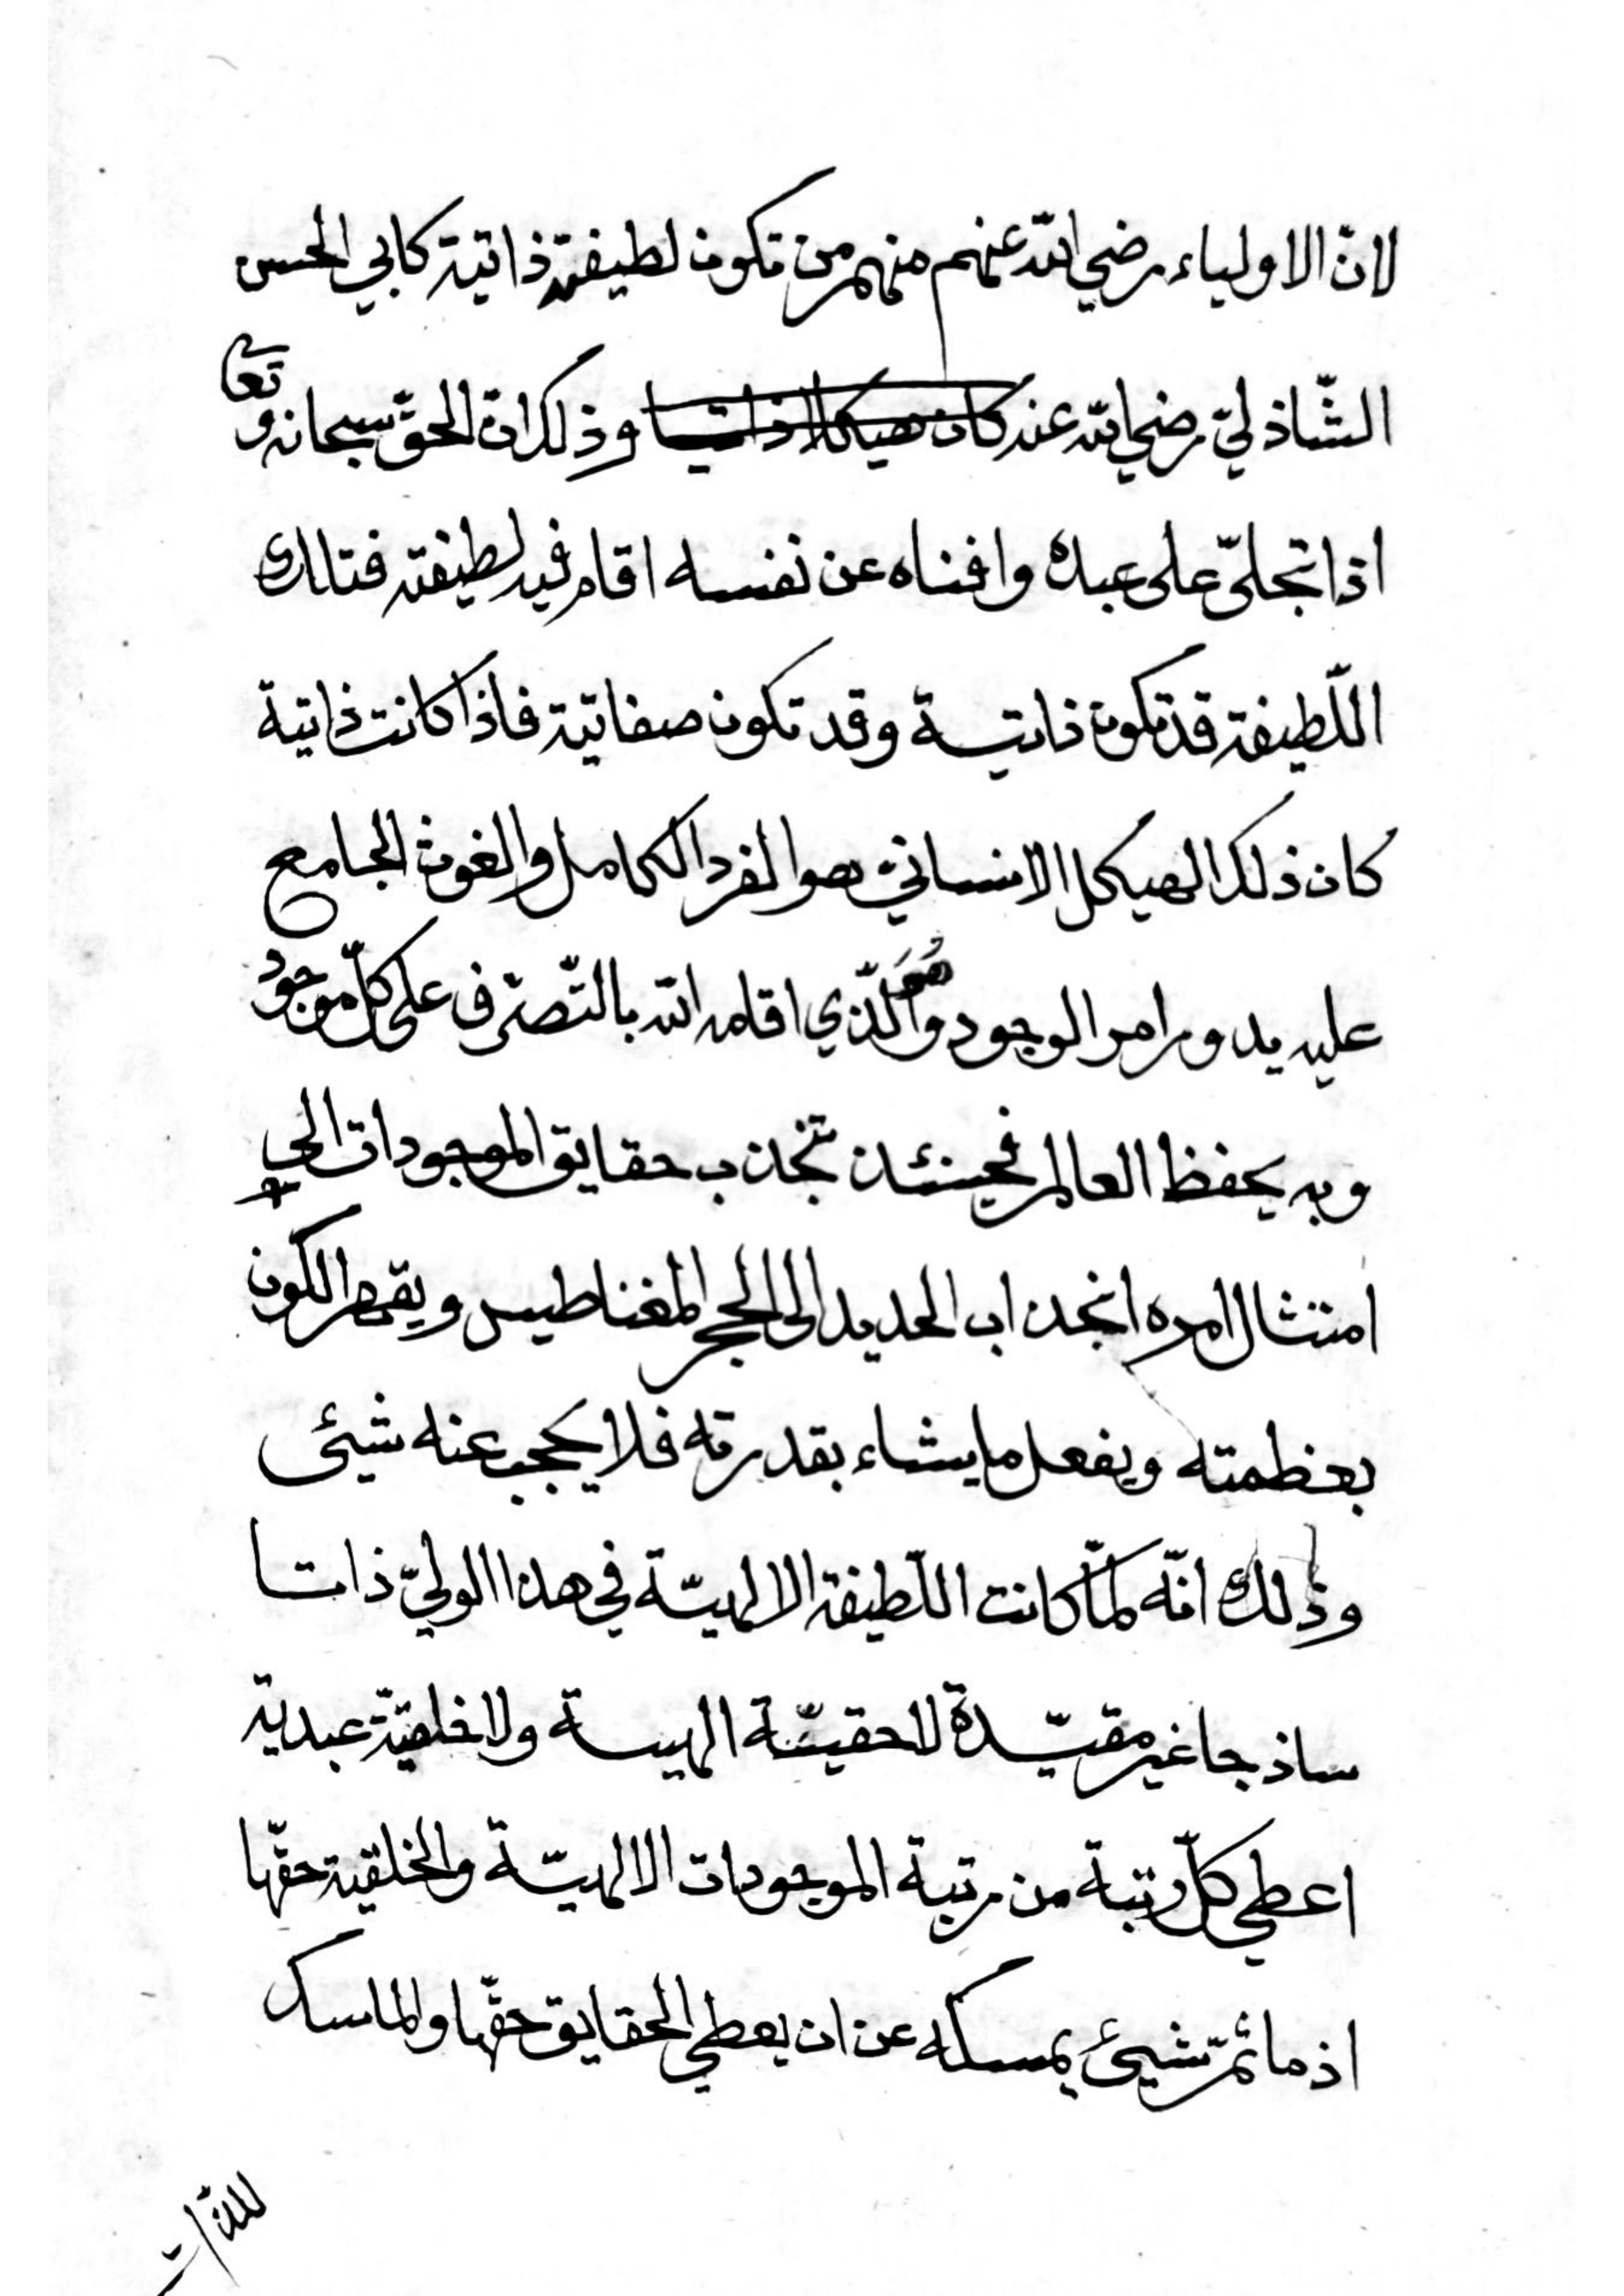 لانّ الاولياء رضي الله عنهم منهم من تكون لطيفته ذاتية كابي الحسن
الشّاذليّ رضي الله عنه كان هيكلا ذاتيا وذلك ان الحقّ سبحانه وتعا
اذا تجلىّ على عبده وافناه عن نفسه اقام فيه لطيفته فتالك
اللّطيفة قد تكون ذاتية وقد تكون صفاتية فاذا كانت ذاتية
كان ذلك الهيكل الانسانيّ هو الفرد الكامل والغوث الجامع
عليه يدور امر الوجود وهُوَ الّذي اقامه الله بالتّصرّف على كلّ موجود
وبه يحفظ العالم فحينئذ تجذب حقايق الموجودات الي
امتثال امره انجذاب الحديد الى الحجر المغناطيس ويقهر الكون
بعظمته ويفعل ما يشاء بقدرته فلا يحجب عنه شيئ
وذلك انّه لمّا كانت اللّطيفة الالهيّة في هذا الوليّ ذاتا
ساذجا غير مقيّدة لا حقيّة الهية ولا خلقيّة عبدية
اعطي كلّ رتبة من مرتبة الموجودات الالهيّة والخلقية حقّها
اذ ما ثمّ شيئ يمسكه عن ان يعطي الحقايق حقّها والماسك
للذات